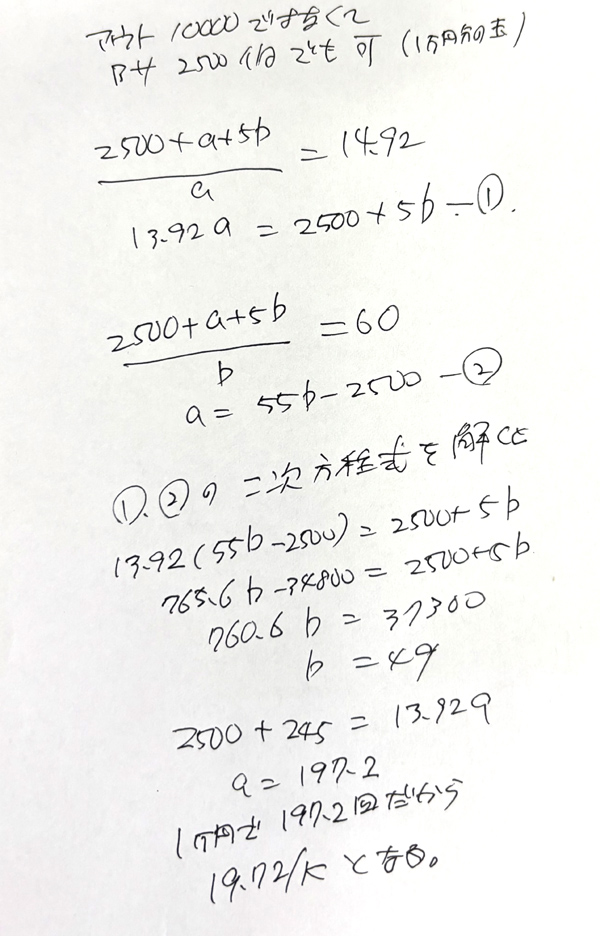 アウト 10000 ではなくて
B サ 2500 個 でも 可 (1万円分の玉)
2500+a+5b / a = 14.92
13.92a = 2500+5b - ①.
2500+a+5b / b = 60
a = 55b-2500 - ②
①、② の 二次方程式を解くと
13.92(55b-2500) = 2500+5b
765.6b-34800 = 2500+5b
760.6b = 37300
b = 49
2500+245 = 13.92a
a = 197.2
1万円で 197.2回だから
19.72/K となる。